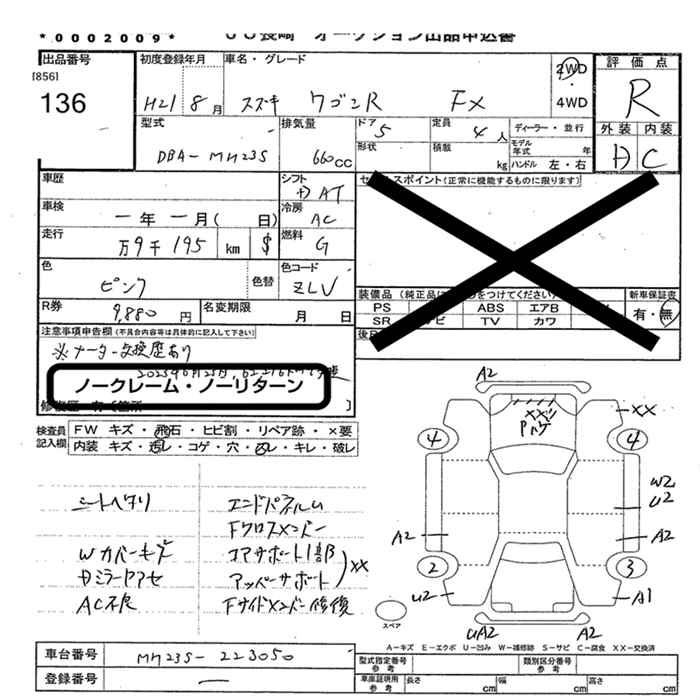 *0002009*
JU長崎 オークション出品申込書
出品番号 初度登録年月 車名・グレード 2WD 評価点
[856]
136 H21 8月 スズキ ワゴンR FX 4WD R
型式 排気量 ドア 5 定員 4人 ディーラー・並行 外装 内装
DBA-MH23S 660cc 形状 積載 kg モデル年式 年 ハンドル 左・右 D C
車歴 シフト AT セールスポイント(正常に機能するものに限ります)
車検 一年一月( 日) 冷房 AC
走行 万9千195 km $ 燃料 G
色 ピンク 色替 色コード ZLV
装備品 (純正品に をつけてください) 新車保証書
PS ABS エアB
SR ナビ TV カワ 有・無
R券 9,880円 名変期限 月 日
注意事項申告欄(不具合内容等は具体的に記入して下さい)
※メーター交換歴あり
ノークレーム・ノーリターン
修復歴 有〔箇所 〕
検査員記入欄 FW キズ・飛石・ヒビ割・リペア跡・×要
内装 キズ・汚レ・コゲ・穴・凹レ・キレ・破レ
シートヘタリ エンドパネルM
Fクロスメンバー
Wカバーキズ コアサポート1部
Dミラーアセ アッパーサポート XX
AC不良 Fサイドメンバー修復
A2
XX
4 4
W2
U2
A2 A2
2 3
U2 A1
スペア
UA2 A2
A-キズ E-エクボ U-凹み W-補修跡 S-サビ C-腐食 XX-交換済
車台番号 MH23S-223050 型式指定番号 参考 類別区分番号 参考
登録番号 一 車庫証明用 参考 長さ cm 幅 cm 高さ cm